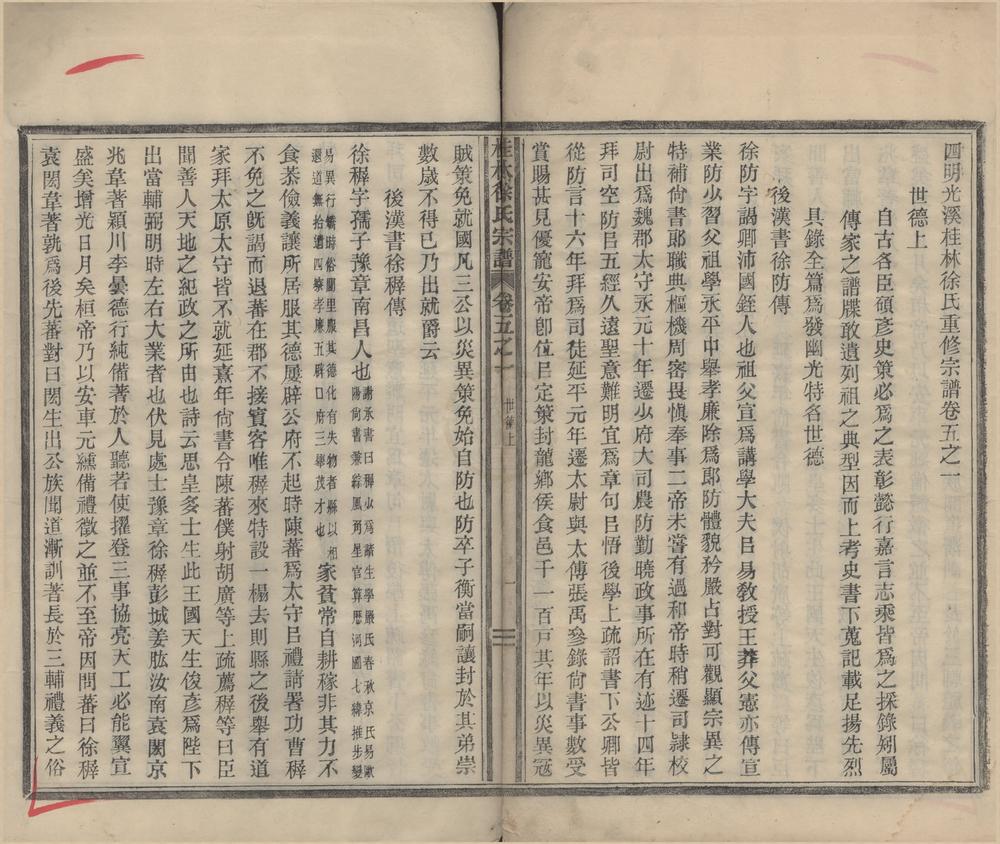 四明光溪桂林徐氏重修宗譜卷五之一
世德上
自古各臣碩彥史策必爲之表彰懿行嘉言志乘皆爲之採錄矧屬
傳家之譜牒敢遺列祖之典型因而上考史書下蒐記載足揚先烈
具錄全篇爲發幽光特各世德
後漢書徐防傳
徐防字謁卿沛國銍人也祖父宣爲講學大夫㠯易敎授王莽父憲亦傳宣
業防少習父祖學永平中舉孝廉除爲郎防體貌矜嚴占對可觀顯宗異之
特補尙書郎職典樞機周密畏愼奉事二帝未嘗有過和帝時稍遷司隸校
尉出爲魏郡太守永元十年遷少府大司農防勤曉政事所在有迹十四年
拜司空防㠯五經久遠聖意難明宜爲章句㠯悟後學上疏詔書下公卿皆
從防言十六年拜爲司徒延平元年遷太尉與太傅張禹參錄尙書事數受
賞賜甚見優寵安帝卽位㠯定策封龍鄉侯食邑千一百戸其年以災異寇
桂林徐氏宗譜
卷五之一
世德上
一
賊策免就國凡三公以災異策免始自防也防卒子衡當嗣讓封於其弟崇
數歲不得已乃出就爵云
後漢書徐稺傳
徐稺字孺子豫章南昌人也
謝承書曰稺少爲諸生學嚴氏春秋京氏易歐
陽尙書兼綜風角星官算歷河圖七緯推步變
易異行矯時俗閭里服其德化有失物者縣以相
還道無拾遺四察孝廉五辟口府三舉茂才也
家貧常自耕稼非其力不
食恭儉義讓所居服其德屢辟公府不起時陳蕃爲太守㠯禮請署功曹稺
不免之旣謁而退蕃在郡不接賓客唯稺來特設一榻去則縣之後舉有道
家拜太原太守皆不就延熹年尙書令陳蕃僕射胡廣等上疏薦稺等曰臣
聞善人天地之紀政之所由也詩云思皇多士生此王國天生俊彥爲陛下
出當輔弼明時左右大業者也伏見處士豫章徐稺彭城姜肱汝南袁閎京
兆韋著潁川李曇德行純備著於人聽若使擢登三事協亮天工必能翼宣
盛美增光日月矣桓帝乃以安車元纁備禮徵之並不至帝因問蕃曰徐稺
袁閎韋著孰爲後先蕃對曰閎生出公族聞道漸訓著長於三輔禮義之俗